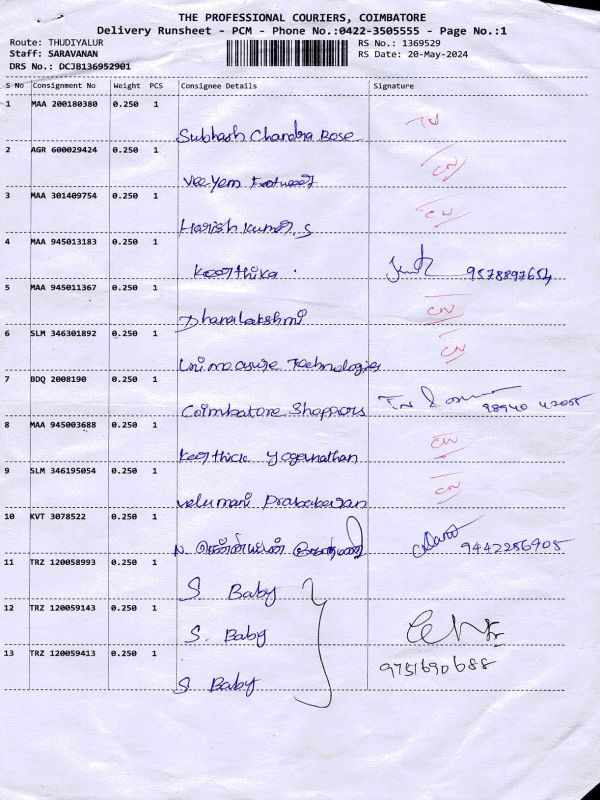 THE PROFESSIONAL COURIERS, COIMBATORE
Delivery Runsheet - PCM - Phone No.:0422-3505555 - Page No.:1
Route: THUDIYALUR RS No.: 1369529
Staff: SARAVANAN RS Date: 20-May-2024
DRS No.: DCJB136952901
S No Consignment No Weight PCS Consignee Details Signature
1 MAA 200180380 0.250 1
Subhash Chandra Bose
2 AGR 600029424 0.250 1 CN
Vee yem Footwear
3 MAA 301409754 0.250 1 CN
Harish Kumar. S
4 MAA 945013183 0.250 1
Keerthika. 9578897654
5 MAA 945011367 0.250 1 CN
Dhanalakshmi
6 SLM 346301892 0.250 1 CN
Unimeasure Technologies
7 BDQ 2008190 0.250 1
Coimbatore Shoppers 98940 42055
8 MAA 945003688 0.250 1 CN
Keerthick Yoganathan
9 SLM 346195054 0.250 1 CN
Velumani Prabakaran
10 KVT 3078522 0.250 1
N. 9442256905
11 TRZ 120058993 0.250 1
S. Baby
12 TRZ 120059143 0.250 1
S. Baby
13 TRZ 120059413 0.250 1 9751690688
S. Baby